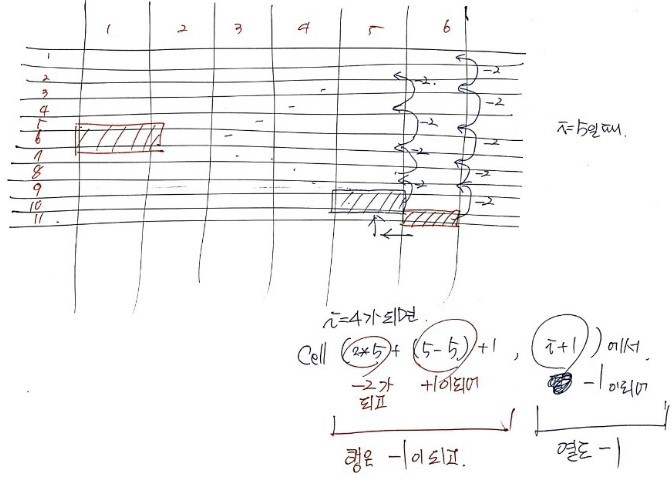 1 2 3 4 5 6
1
2
3
4
5
6
7
8
9
10
11
-2 -2
-2
-2 -2
-2 -2
-2 -2
i=5일때.
i=4가 되면.
Cell (2*5 + (5-5) +1 , i+1 ) 에서.
-2가 되고 +1이되어 -1이되어
행은 -1이되고. 열도 -1